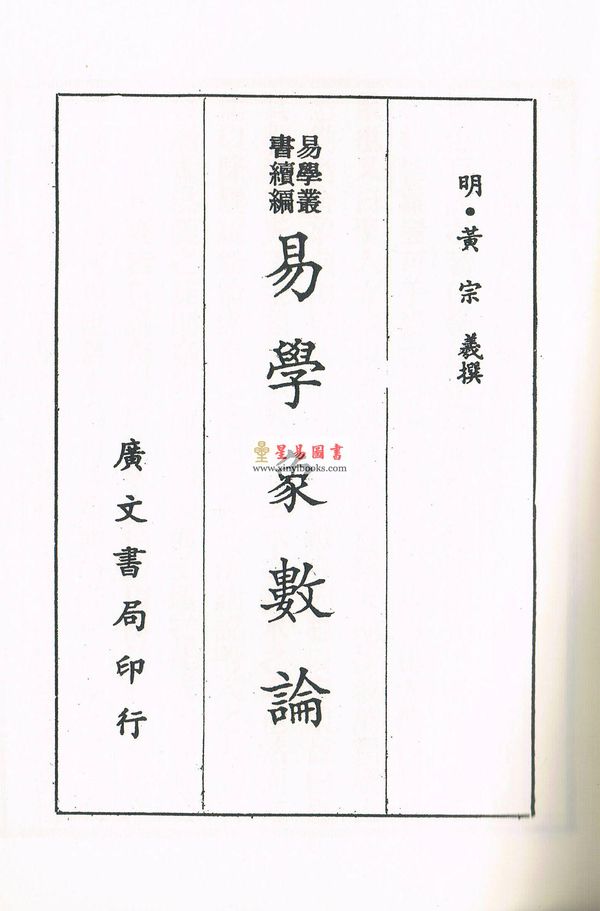 明·黃宗羲撰
易學叢
書續編
易學象數論
星易圖書
www.xinyibooks.com
廣文書局印行